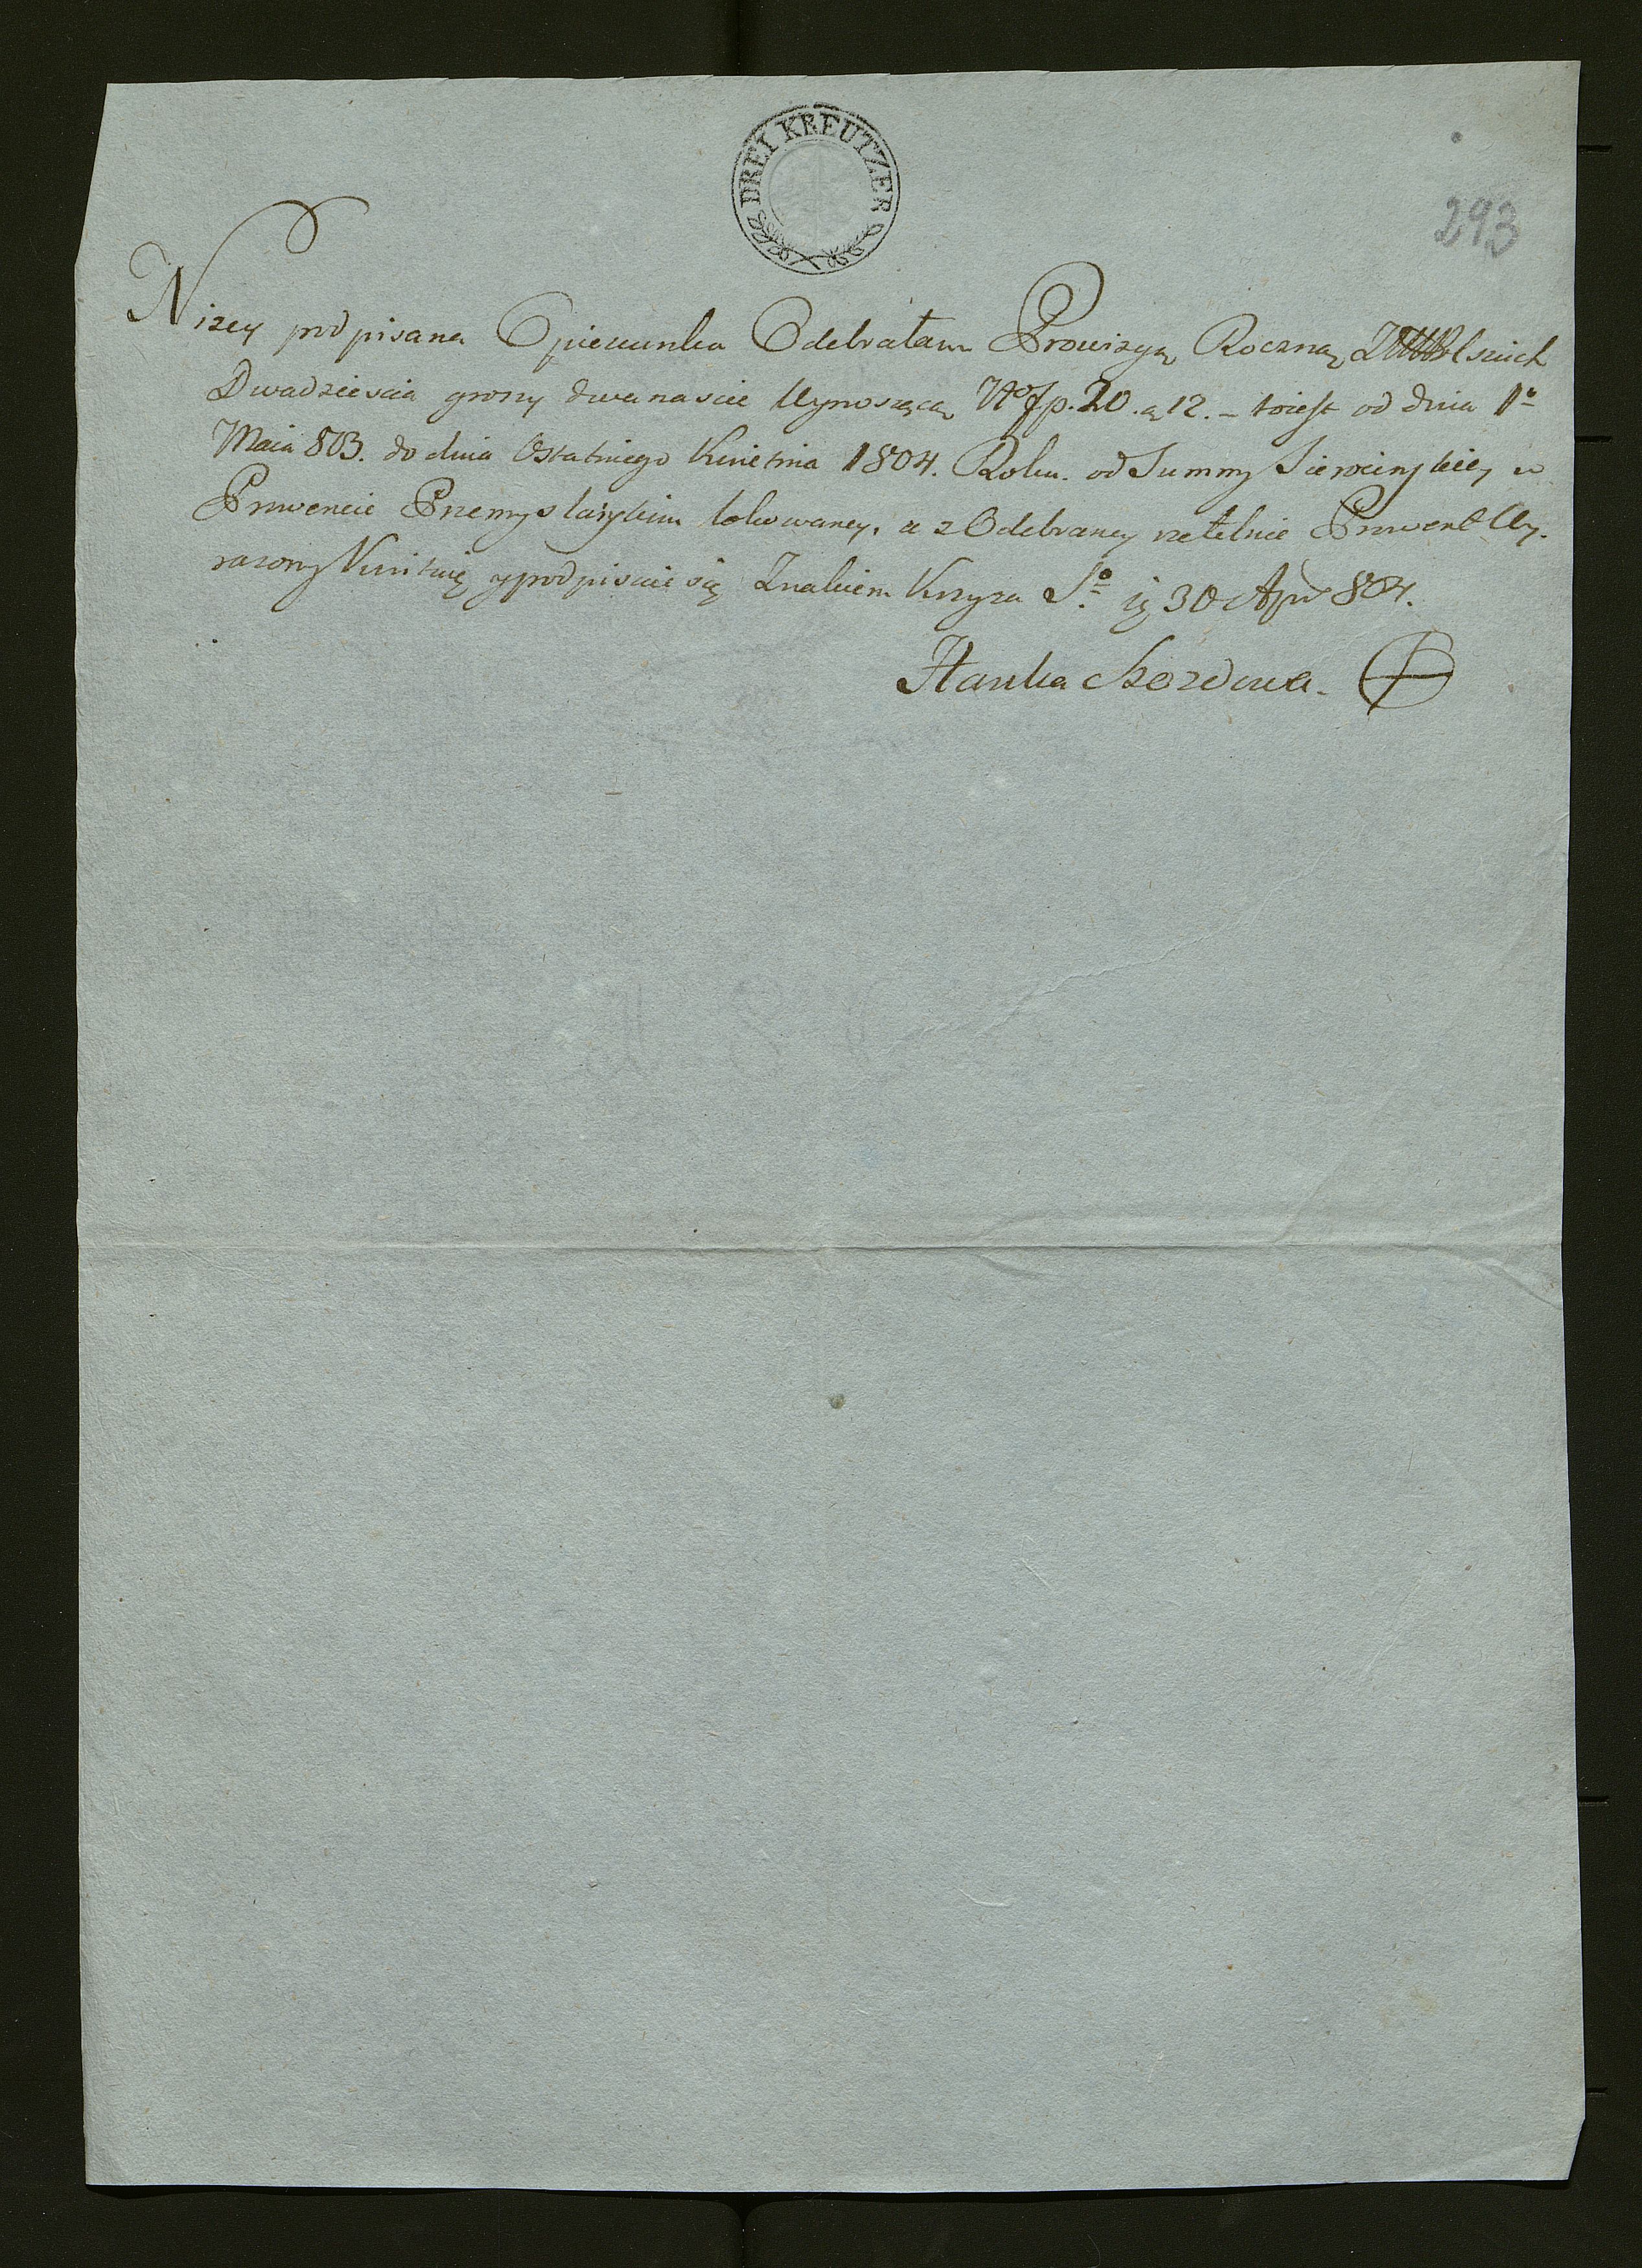 DREI KREUTZER
293
Niżey podpisana Opiekunka Odebrałam Prowizyą Roczną
Dwadziescia groszy dwanascie Wynoszącą No fp. 20. g 12. – toiest od dnia 1o
Maia 803. do dnia Ostatniego Kwietnia 1804. Roku. od Summy Sierocinskiey w
Prowencie Przemyslańskim lokowaney, a z Odebraney rzetelnie Prowent Wy-
razony Kwituię y podpisuie się Znakiem Krzyza So. 30 Apr 804.
Hanka